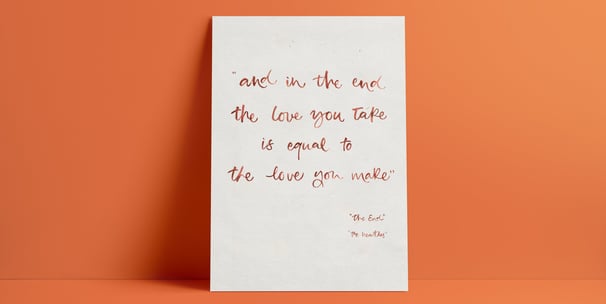 "and in the end
the love you take
is equal to
the love you make"
"the End"
"The Beatles"